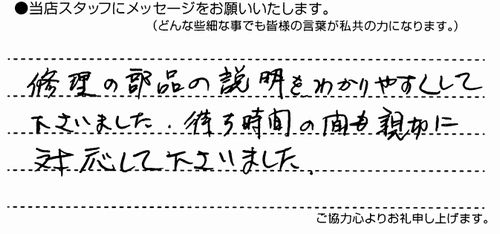 ●当店スタッフにメッセージをお願いいたします。
(どんな些細な事でも皆様の言葉が私共の力になります。)
修理の部品の説明をわかりやすくして
下さいました。待ち時間の間も親切に
対応して下さいました。
ご協力心よりお礼申し上げます。